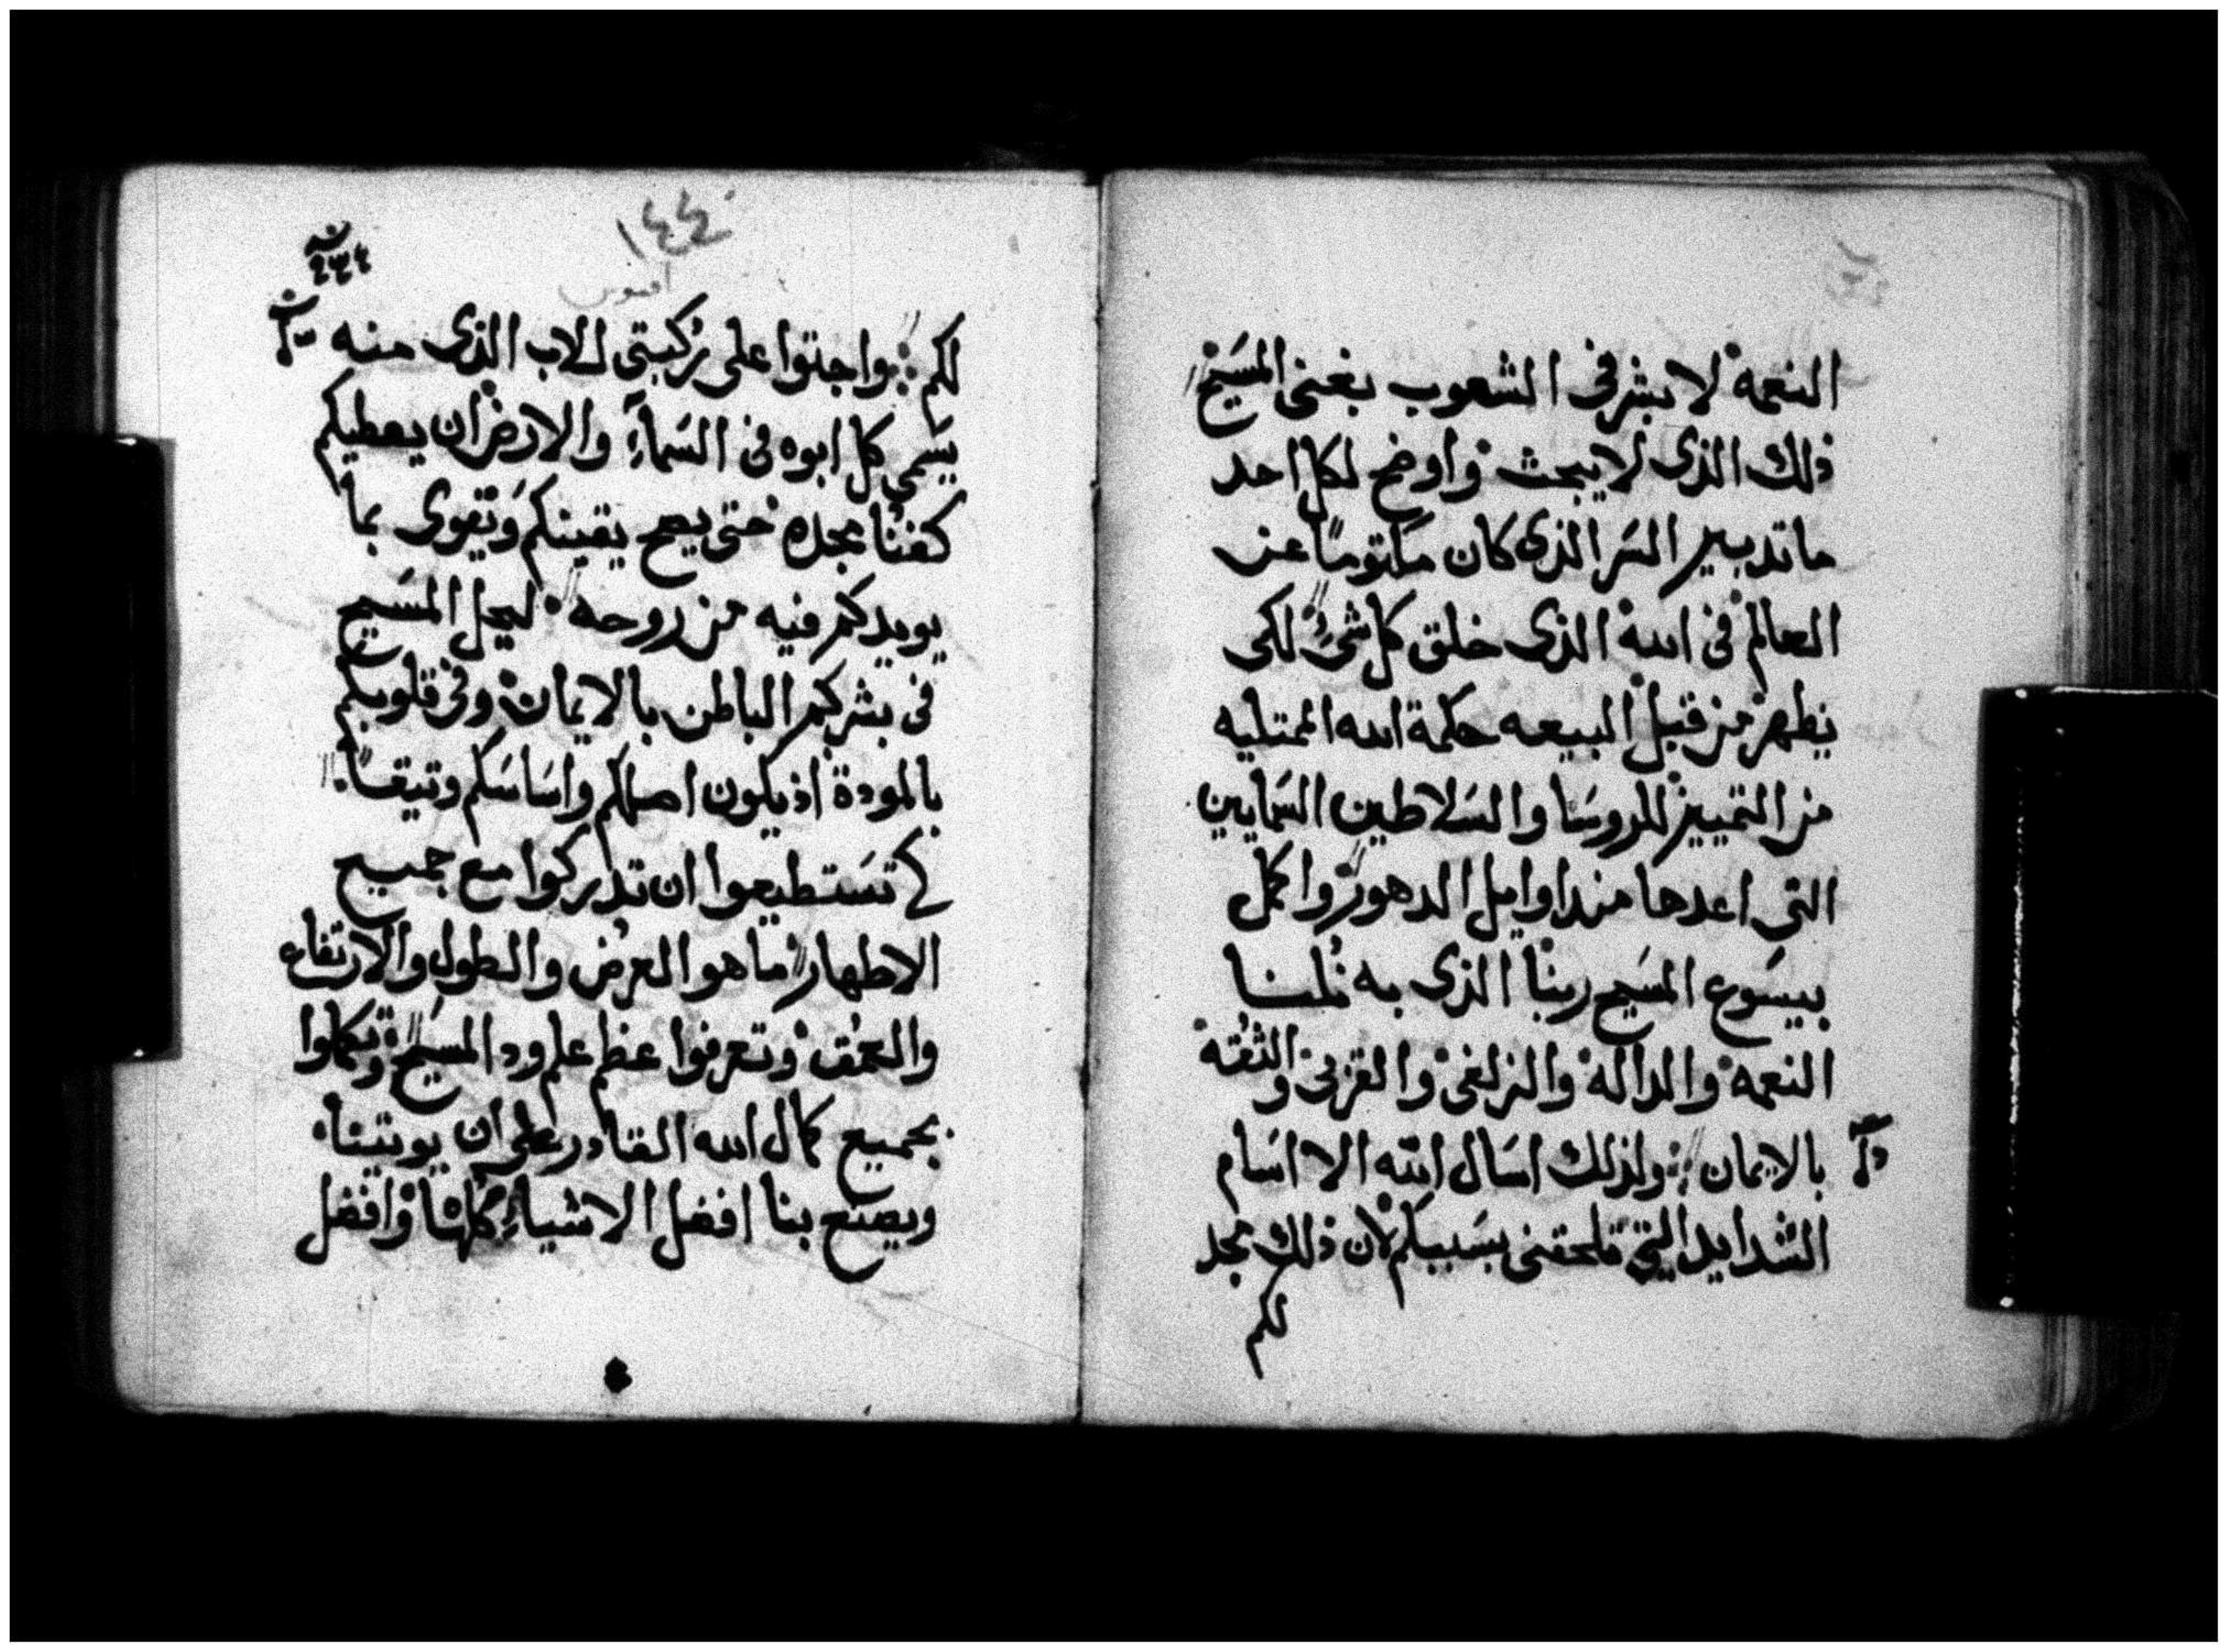 النعمة لابشر فى الشعوب بغنى المسَيح
ذلك الذى لا يبحث واوضح لكل احد
ما تدبير السَر الذى كان مكتومًا عن
العالم فى الله الذى خلق كل شىُ لكى
يظهر من قبل البيعه حكمة الله الممتليه
من التمييز للروسَا والسَلاطين السَمايين
التى اعدها منداوايل الدهور واكمل
بيسَوع المسَيح ربنا الذى به نُلنا
النعمة والدالة والزلفى والقربى والثقة
بالايمان ولذلك اسَال الله الا اسَام
الشدايد التى تلحقنى بسَببكم لان ذلك مجد
لكم
١٤٤
افسس
لكم واجتوا على ركبتى للاب الذى منه
يسَمى كل ابوه فى السَمآءِ والارض ان يعطيكم
كغنا مجده حتى يصح يقينكم وتقوى بما
يويدكم فيه من روحه ليحل المسَيح
فى بشركم الباطن بالايمان وفى قلوبكم
بالمودة اذ يكون اصلكم واسَاسَكم وتيقًا
لكى تسَتطيعوا ان تدركوا مع جميع
الاطهار ما هو العرُض والطول والارتفاع
والعمُق وتعرفوا عظم علم ود المسَيح وتكملوا
بجميع كمال الله القادر على ان يوتينا
ويصنع بنا افضل الاشياءِ كلها وافضل